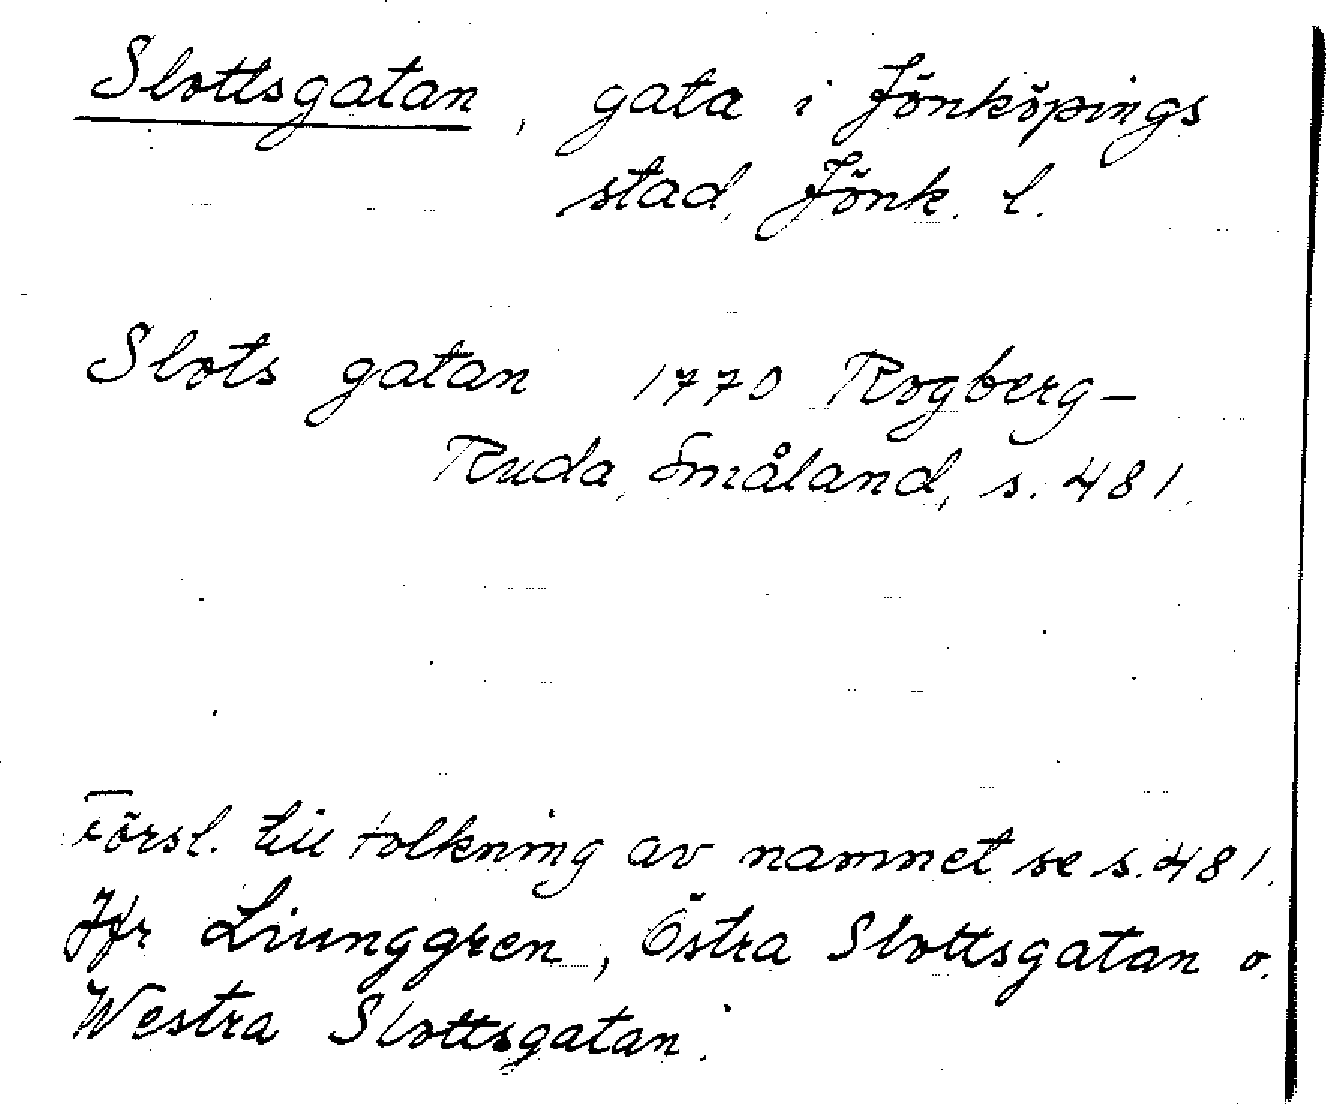 Slottsgatan, gata i Jönköpings
stad, Jönk. l.
Slots gatan 1770 Rogberg-
Ruda, Småland, s. 481.
Försl. till tolkning av namnet se s. 481.
Jfr Liunggren, Östra Slottsgatan o.
Westra Slottsgatan.